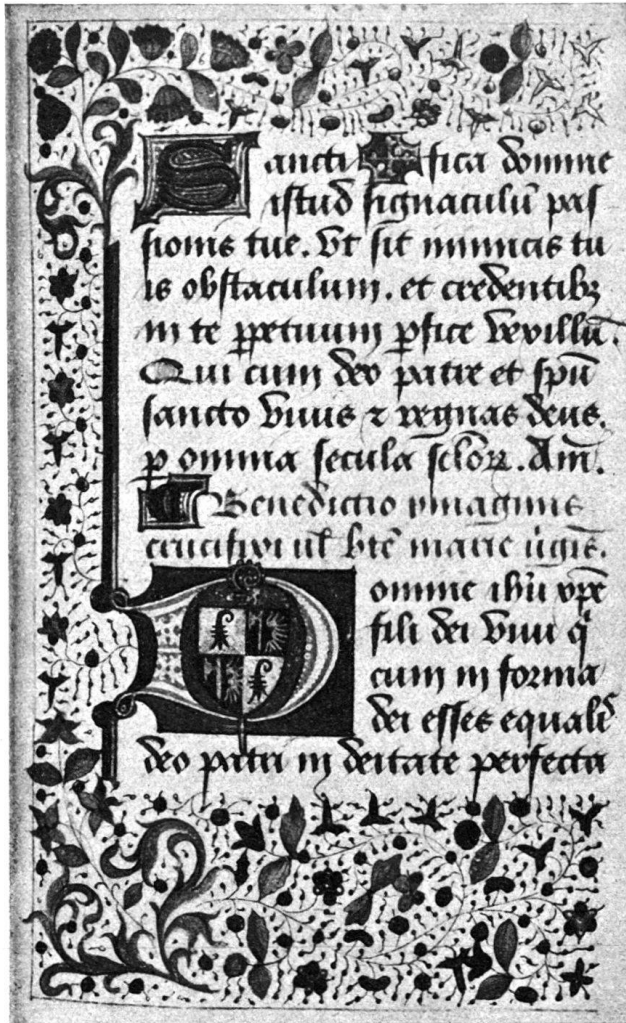 Sancti✠fica domine
istud signaculū pas
sionis tue. Vt sit inimicis tu
is obstaculum. et credentibꝫ
in te ꝑpetuum ꝑfice vexillū.
Qui cum deo patre et spū
sancto viuis ⁊ regnas deus.
ꝑ omnia secula sclōꝝ. Am̄.
Benedictio ymaginis
crucifixi ul̓ btē marie ũgīs.
Domine ihū xp̄e
fili dei viui q̇
cum in forma
dei esses equalis
deo patri in deitate perfecta